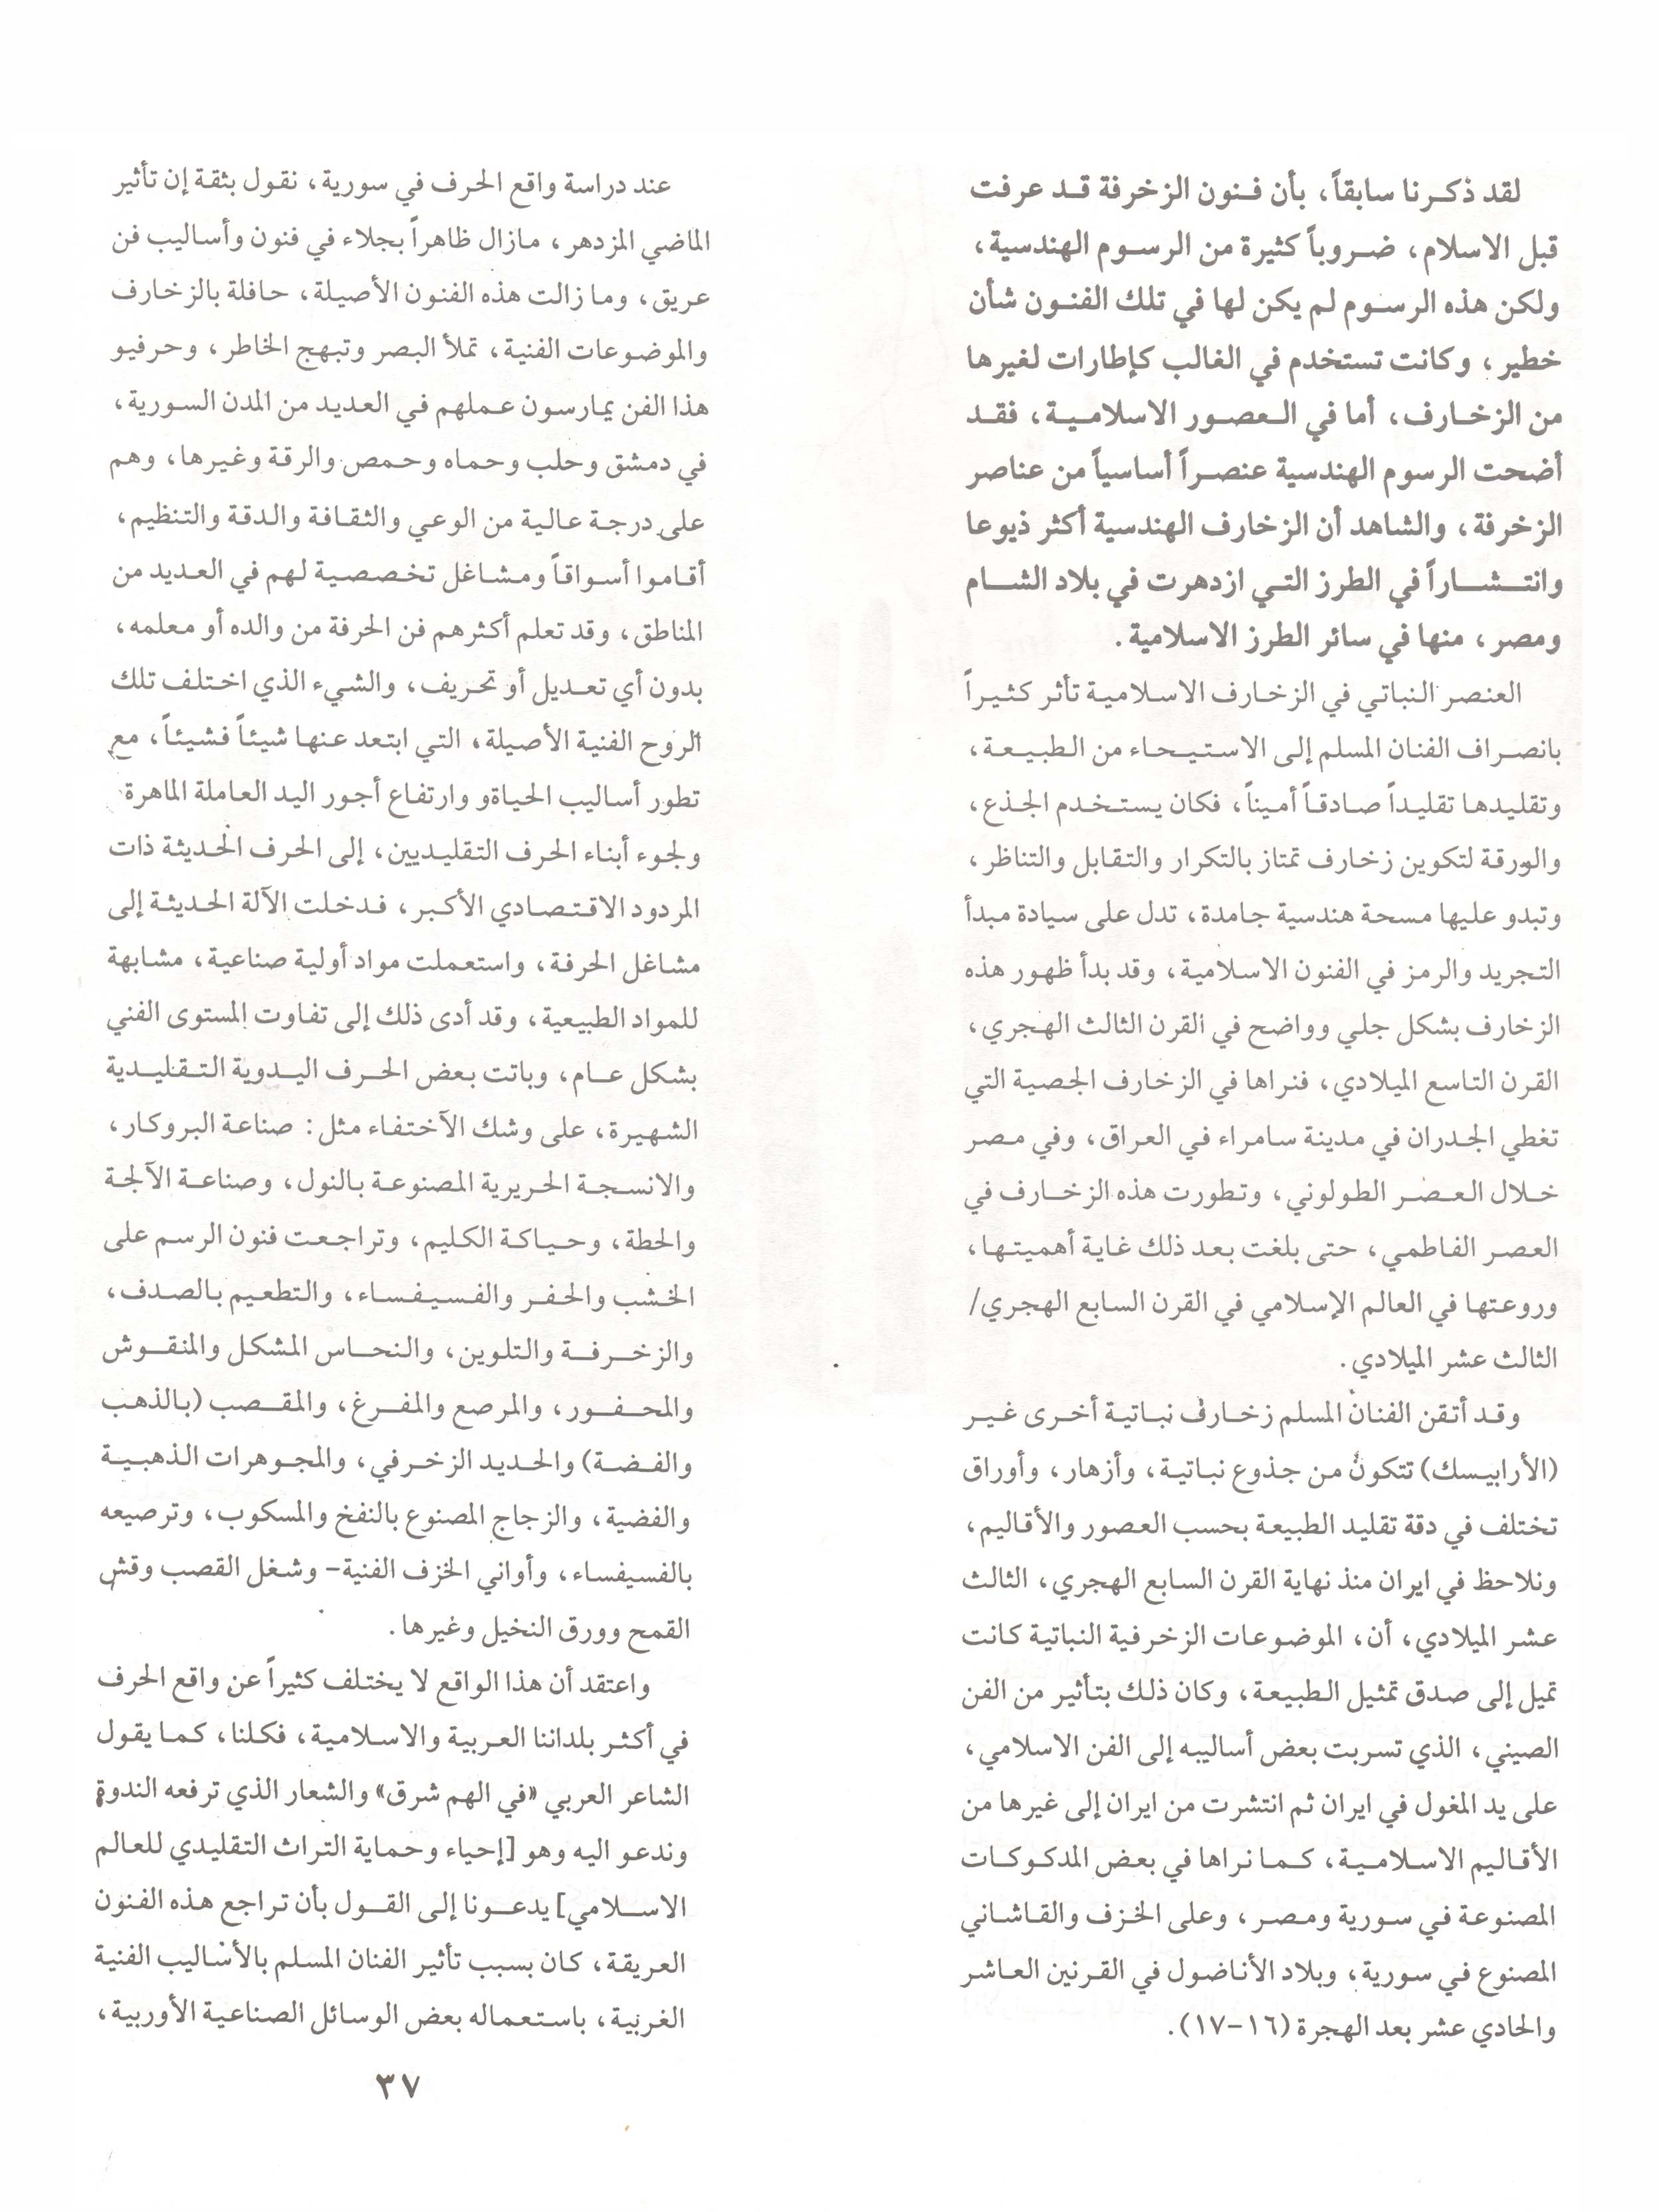 لقد ذكرنا سابقاً، بأن فنون الزخرفة قد عرفت
قبل الاسلام، ضروباً كثيرة من الرسوم الهندسية،
ولكن هذه الرسوم لم يكن لها في تلك الفنون شأن
خطير، وكانت تستخدم في الغالب كإطارات لغيرها
من الزخارف، أما في العصور الاسلامية، فقد
أضحت الرسوم الهندسية عنصراً أساسياً من عناصر
الزخرفة، والشاهد أن الزخارف الهندسية أكثر ذيوعا
وانتشاراً في الطرز التي ازدهرت في بلاد الشام
ومصر، منها في سائر الطرز الاسلامية.
العنصر النباتي في الزخارف الاسلامية تأثر كثيراً
بانصراف الفنان المسلم إلى الاستيحاء من الطبيعة،
وتقليدها تقليداً صادقاً أميناً، فكان يستخدم الجذع،
والورقة لتكوين زخارف تمتاز بالتكرار والتقابل والتناظر،
وتبدو عليها مسحة هندسية جامدة، تدل على سيادة مبدأ
التجريد والرمز في الفنون الاسلامية، وقد بدأ ظهور هذه
الزخارف بشكل جلي وواضح في القرن الثالث الهجري،
القرن التاسع الميلادي، فنراها في الزخارف الجصية التي
تغطي الجدران في مدينة سامراء في العراق، وفي مصر
خلال العصر الطولوني، وتطورت هذه الزخارف في
العصر الفاطمي، حتى بلغت بعد ذلك غاية أهميتها،
وروعتها في العالم الإسلامي في القرن السابع الهجري/
الثالث عشر الميلادي.
وقد أتقن الفنان المسلم زخارف نباتية أخرى غير
(الأرابيسك) تتكون من جذوع نباتية، وأزهار، وأوراق
تختلف في دقة تقليد الطبيعة بحسب العصور والأقاليم،
ونلاحظ في ايران منذ نهاية القرن السابع الهجري، الثالث
عشر الميلادي، أن، الموضوعات الزخرفية النباتية كانت
تميل إلى صدق تمثيل الطبيعة، وكان ذلك بتأثير من الفن
الصيني، الذي تسربت بعض أساليبه إلى الفن الاسلامي،
على يد المغول في ايران ثم انتشرت من ايران إلى غيرها من
الأقاليم الاسلامية، كما نراها في بعض المدكوكات
المصنوعة في سورية ومصر، وعلى الخزف والقاشاني
المصنوع في سورية، وبلاد الأناضول في القرنين العاشر
والحادي عشر بعد الهجرة (١٦-١٧).
عند دراسة واقع الحرف في سورية، نقول بثقة إن تأثير
الماضي المزدهر، مازال ظاهراً بجلاء في فنون وأساليب فن
عريق، وما زالت هذه الفنون الأصيلة، حافلة بالزخارف
والموضوعات الفنية، تملأ البصر وتبهج الخاطر، وحرفيو
هذا الفن يمارسون عملهم في العديد من المدن السورية،
في دمشق وحلب وحماه وحمص والرقة وغيرها، وهم
على درجة عالية من الوعي والثقافة والدقة والتنظيم،
أقاموا أسواقاً ومشاغل تخصصية لهم في العديد من
المناطق، وقد تعلم أكثرهم فن الحرفة من والده أو معلمه،
بدون أي تعديل أو تحريف، والشيء الذي اختلف تلك
الروح الفنية الأصيلة، التي ابتعد عنها شيئاً فشيئاً، مع
تطور أساليب الحياةو وارتفاع أجور اليد العاملة الماهرة
ولجوء أبناء الحرف التقليديين، إلى الحرف الحديثة ذات
المردود الاقتصادي الأكبر، فدخلت الآلة الحديثة إلى
مشاغل الحرفة، واستعملت مواد أولية صناعية، مشابهة
للمواد الطبيعية، وقد أدى ذلك إلى تفاوت المستوى الفني
بشكل عام، وباتت بعض الحرف اليدوية التقليدية
الشهيرة، على وشك الآختفاء مثل: صناعة البروكار،
والانسجة الحريرية المصنوعة بالنول، وصناعة الآلجة
والحطة، وحياكة الكليم، وتراجعت فنون الرسم على
الخشب والحفر والفسيفساء، والتطعيم بالصدف،
والزخرفة والتلوين، والنحاس المشكل والمنقوش
والمحفور، والمرصع والمفرغ، والمقصب (بالذهب
والفضة) والحديد الزخرفي، والمجوهرات الذهبية
والفضية، والزجاج المصنوع بالنفخ والمسكوب، وترصيعه
بالفسيفساء، وأواني الخزف الفنية- وشغل القصب وقش
القمح وورق النخيل وغيرها.
واعتقد أن هذا الواقع لا يختلف كثيراً عن واقع الحرف
في أكثر بلداننا العربية والاسلامية، فكلنا، كما يقول
الشاعر العربي «في الهم شرق» والشعار الذي ترفعه الندوة
وندعو اليه وهو [إحياء وحماية التراث التقليدي للعالم
الاسلامي] يدعونا إلى القول بأن تراجع هذه الفنون
العريقة، كان بسبب تأثير الفنان المسلم بالأساليب الفنية
الغربية، باستعماله بعض الوسائل الصناعية الأوربية،
٣٧